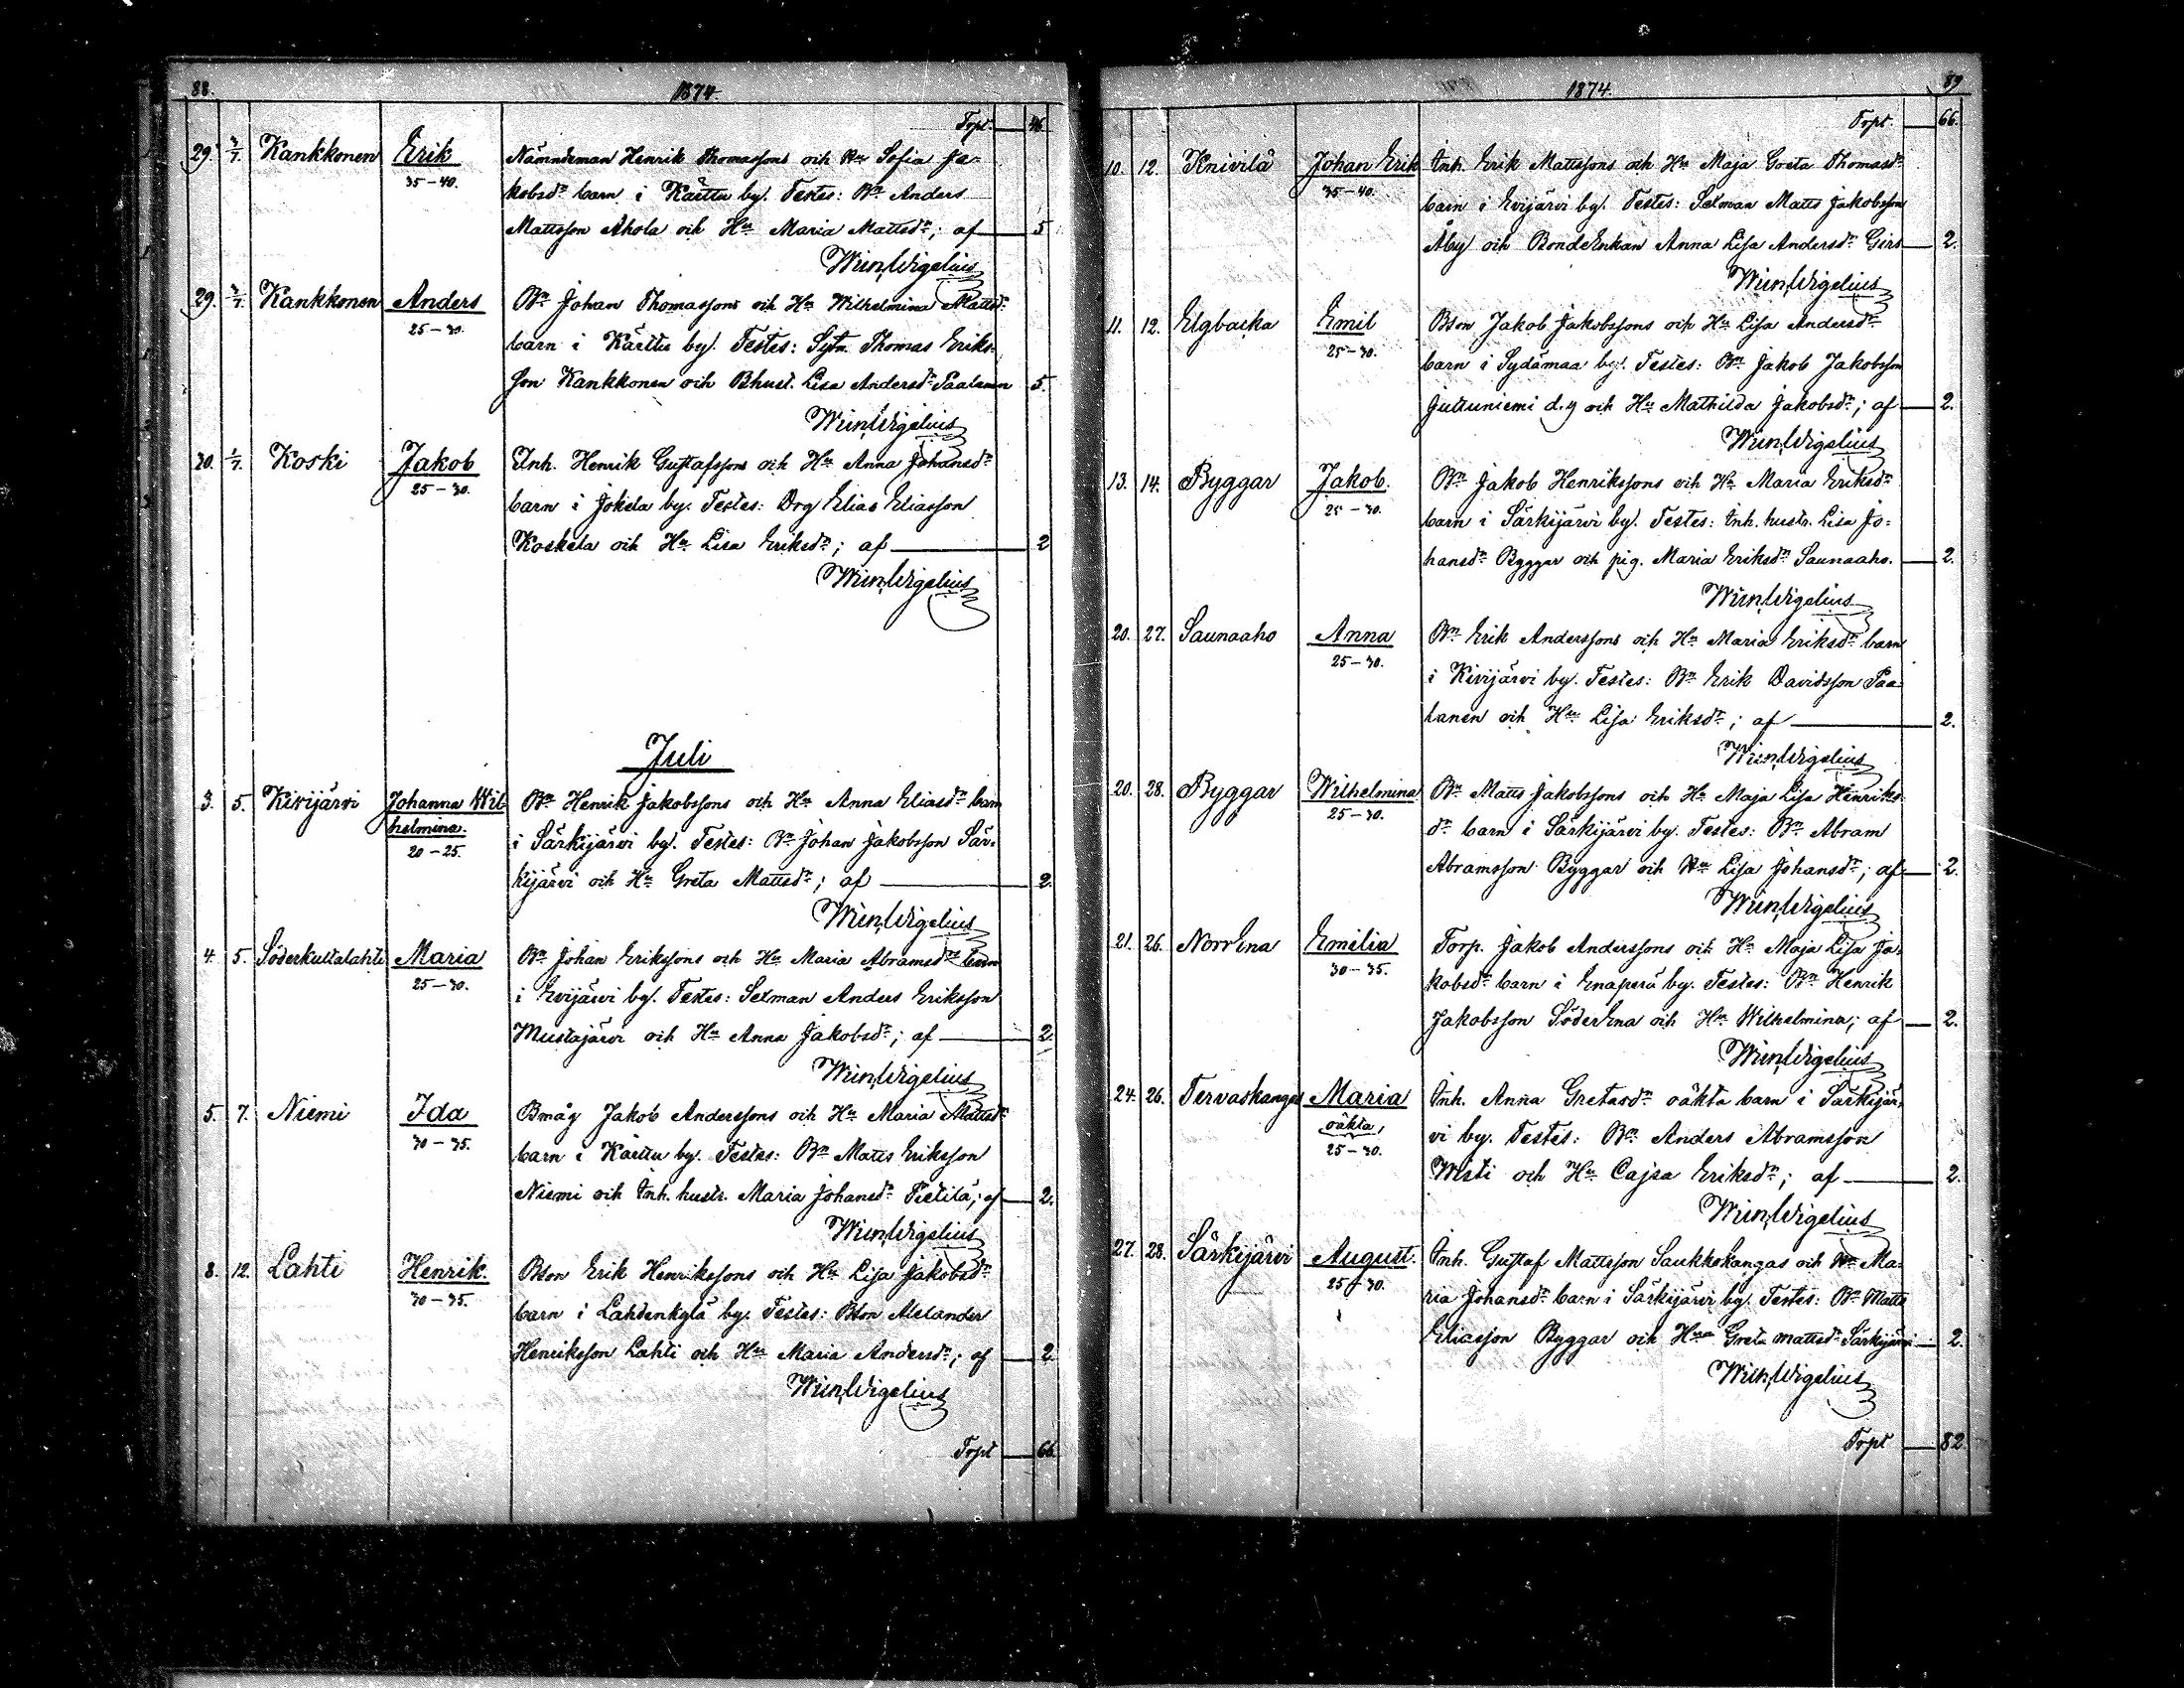 88. 1874.
Trpt. 46
29. 2/7. Kankkonen Erik Nämndeman Henrik Thomassons och Hu Sofia Ja-
35-40. kobsdr barn i Kärttu by. Testes: Bn Anders
Mattsson Ahola och Hu Maria Mattsdr; af 5
Wm Wigelius
29. 2/7. Kankkonen Anders Bn Johan Thomassons och Hu Wilhelmina Mattsdr
25-30. barn i Kärttu by. Testes: Sytn. Thomas Eriks-
son Kankkonen och Bhust. Lisa Andersdr Paalanen 5.
Wm Wigelius
30. 1/7. Koski Jakob Inh. Henrik Gustafssons och Hu Anna Johansdr
25-30. barn i Jokela by. Testes: Drg Elias Eliasson
Koskela och Hu Lisa Eriksdr; af 2
Wm Wigelius
Juli
3. 5. Kivijärvi Johanna Wil- Bn Henrik Jakobssons och Hu Anna Eliasdr barn
helmina. i Särkijärvi by. Testes: Bn Johan Jakobsson Sär-
20-25. kijärvi och Hu Greta Mattsdr; af 2.
Wm Wigelius
4. 5. Söderkultalahti Maria Bn Johan Erikssons och Hu Maria Abramsdr barn
25-30. i Evijärvi by. Testes: Sexman Anders Eriksson
Mustajärvi och Hu Anna Jakobsdr; af 2.
Wm Wigelius
5. 7. Niemi Ida Bmåg Jakob Anderssons och Hu Maria Mattsdr
30-35. barn i Kärttu by. Testes: Bn Matts Eriksson
Niemi och Inh. hustr. Maria Johansdr Pietilä; af 2.
Wm Wigelius
8. 12. Lahti Henrik. Bson Erik Henrikssons och Hu Lisa Jakobsdr
30-35. barn i Lahdenkylä by. Testes: Bson Alexander
Henriksson Lahti och Hu Maria Andersdr; af 2.
Wm Wigelius
Trpt 66.
1874. 89
Trpt. 66.
10. 12. Knivilä Johan Erik Inh. Erik Mattssons och Hu Maja Greta Thomasdr
35-40. barn i Evijärvi by. Testes: Sexman Matts Jakobsson
Åby och BondeEnkan Anna Lisa Andersdr Girs 2.
Wm Wigelius
11. 12. Elgbacka Emil Bson Jakob Jakobssons och Hu Lisa Andersdr
25-30. barn i Sydämaa by. Testes: Bn Jakob Jakobsson
Jutuniemi d.y och Hu Mathilda Jakobsdr; af 2.
Wm Wigelius
13. 14. Byggar Jakob. Bn Jakob Henrikssons och Hu Maria Eriksdr
25-30. barn i Särkijärvi by. Testes: Inh. hustr. Lisa Jo-
hansdr Byggar och pig. Maria Eriksdr Saunaaho. 2.
Wm Wigelius
20. 27. Saunaaho Anna Bn Erik Anderssons och Hu Maria Eriksdr barn
25-30. i Kivijärvi by. Testes: Bn Erik Davidsson Paa-
lanen och Hu Lisa Eriksdr; af 2.
Wm Wigelius
20. 28. Byggar Wilhelmina Bn Matts Jakobssons och Hu Maja Lisa Henriks-
25-30. dr barn i Särkijärvi by. Testes: Bn Abram
Abramsson Byggar och Hu Lisa Johansdr; af 2.
Wm Wigelius
21. 26. NorrEna Emilia Torp. Jakob Anderssons och Hu Maja Lisa Ja-
30-35. kobsdr barn i Enaperä by. Testes: Bn Henrik
Jakobsson SöderEna och Hu Wilhelmina; af 2.
Wm Wigelius
24. 26. Tervaskangas Maria Inh. Anna Gretasdr oäkta barn i Särkijär-
oäkta, vi by. Testes: Bn Anders Abramsson
25-30. Wisti och Hu Cajsa Eriksdr; af 2.
Wm Wigelius
27. 28. Särkijärvi August. Inh. Gustaf Mattsson Saukkokangas och Hu Ma-
25-30. ria Johansdr barn i Särkijärvi by. Testes: Bn Matts
Eliasson Byggar och Hu Greta Mattsdr Särkijärvi 2.
Wm Wigelius
Trpt 82.